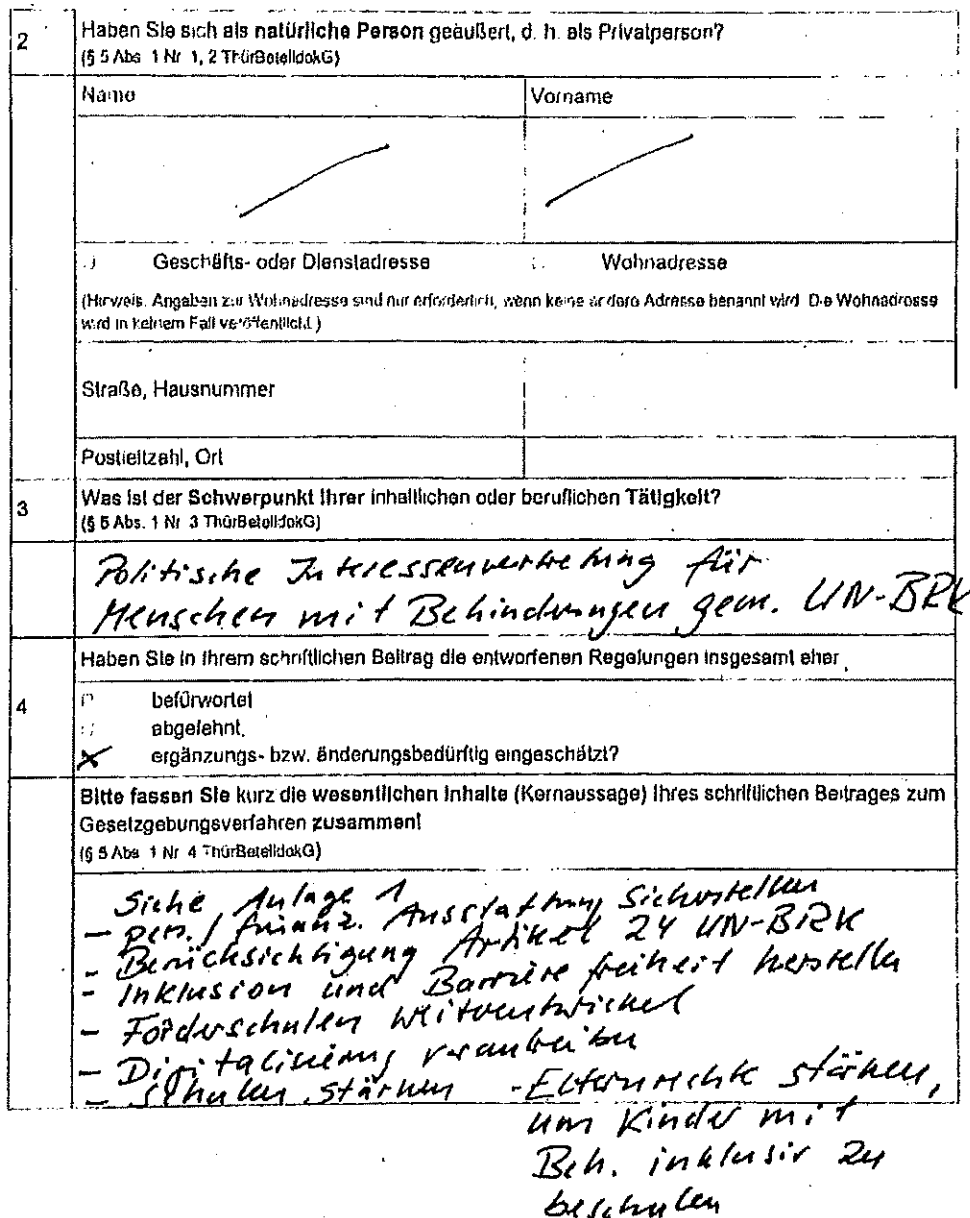 2
Haben Sie sich als natürliche Person geäußert, d. h. als Privatperson?
(§ 5 Abs. 1 Nr. 1, 2 ThürBeteildokG)
Name
Vorname
Geschäfts- oder Dienstadresse
Wohnadresse
(Hinweis. Angaben zur Wohnadresse sind nur erforderlich, wenn keine andere Adresse benannt wird. Die Wohnadresse
wird in keinem Fall veröffentlicht.)
Straße, Hausnummer
Postleitzahl, Ort
3
Was ist der Schwerpunkt Ihrer inhaltlichen oder beruflichen Tätigkeit?
(§ 5 Abs. 1 Nr. 3 ThürBeteildokG)
Politische Interessenvertretung für
Menschen mit Behinderungen gem. UN-BRK
Haben Sie in Ihrem schriftlichen Beitrag die entworfenen Regelungen insgesamt eher
4
befürwortet
abgelehnt,
ergänzungs- bzw. änderungsbedürftig eingeschätzt?
Bitte fassen Sie kurz die wesentlichen Inhalte (Kernaussage) Ihres schriftlichen Beitrages zum
Gesetzgebungsverfahren zusammen!
(§ 5 Abs. 1 Nr. 4 ThürBeteildokG)
Siehe Anlage 1
- pers./finanz. Ausstattung Sicherstellen
- Berücksichtigung Artikel 24 UN-BRK
- Inklusion und Barrierefreiheit herstellen
- Förderschulen weiterentwickel
- Digitalisierung vorantreiben
- Schulen stärken - Elternrechte stärken,
um Kinder mit
Beh. inklusiv zu
beschulen